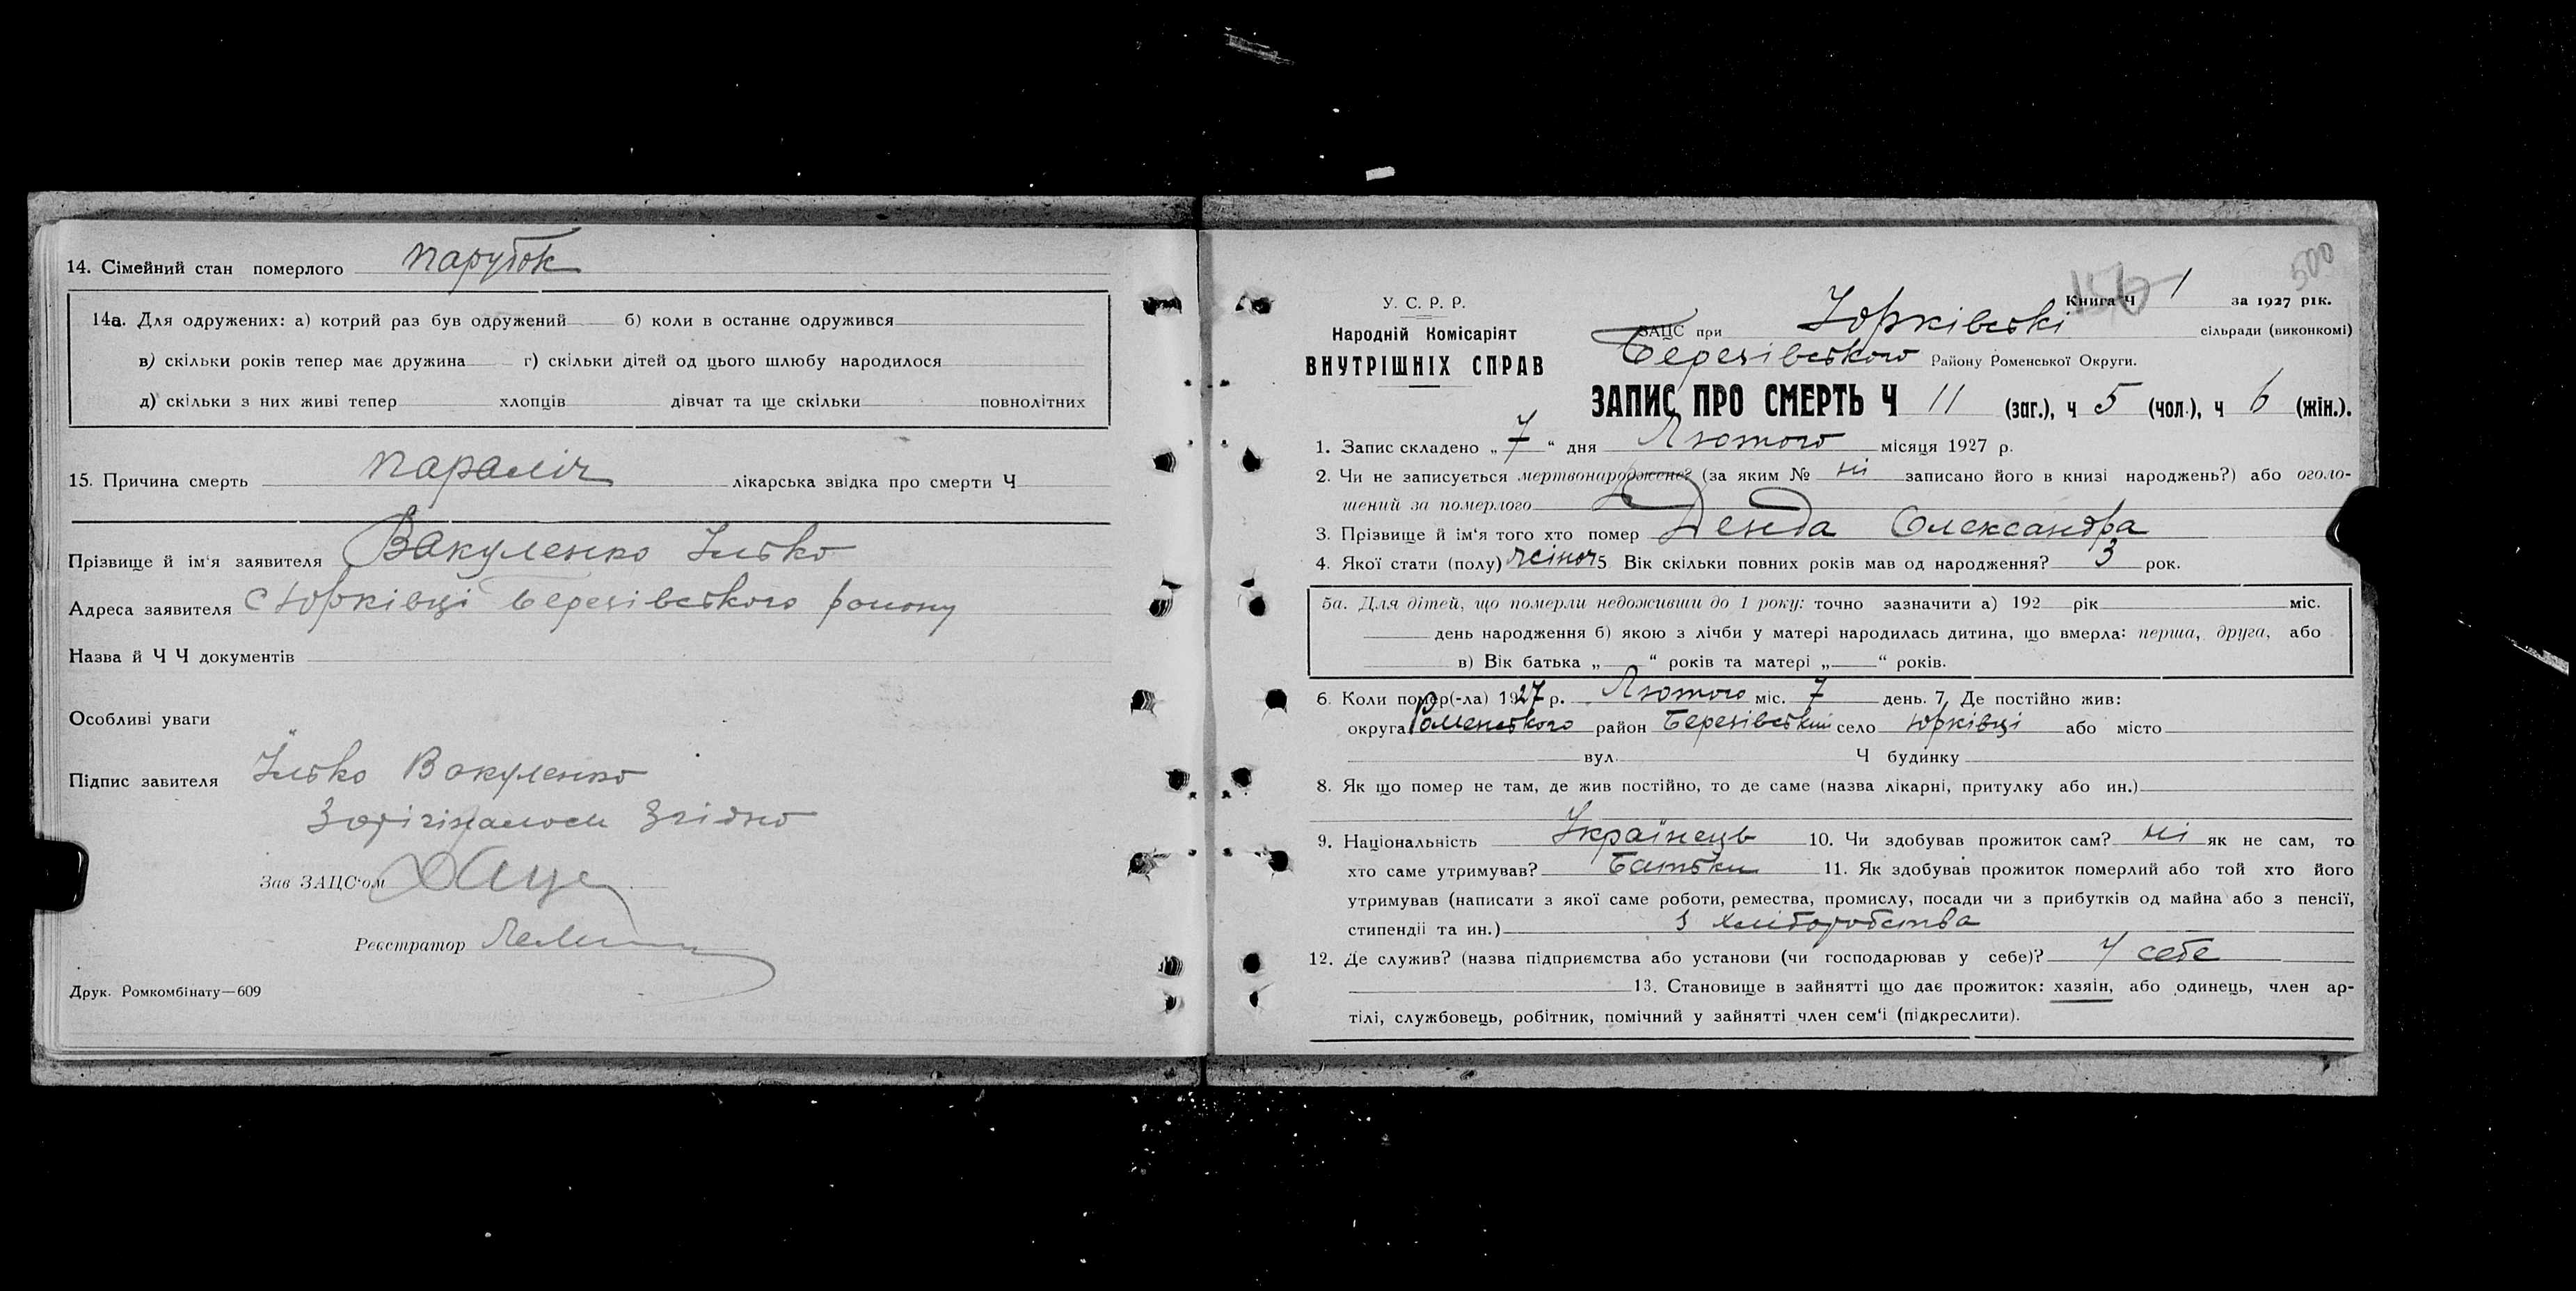 14. Сімейний стан померлого парубок
14а. Для одружених: а) котрий раз був одружений б) коли в останнє одружився
в) скільки років тепер має дружина г) скільки дітей од цього шлюбу народилося
д) скільки з них живі тепер хлопців дівчат та ще скільки повнолітних
15. Причина смерть параліч лікарська звідка про смерти Ч
Прізвище й ім'я заявителя Вакуленко Ілько
Адреса заявителя с Юрківці Березівського району
Назва й Ч Ч документів
Особливі уваги
Підпис завителя Ілько Вакуленко
З оргіналом Згідно
Зав ЗАЦС'ом
Реєстратор
Друк. Ромкомбінату—609
500
У. С. Р. Р.
Народній Комісаріят
ВНУТРІШНІХ СПРАВ
Книга Ч 1 за 1927 рік.
ЗАЦС при Юрківські сільради (виконкомі)
Березівського Району Роменської Округи.
ЗАПИС ПРО СМЕРТЬ Ч 11 (заг.), ч 5 (чол.), ч 6 (жін.).
1. Запис складено „ 7 “ дня Лютого місяця 1927 р.
2. Чи не записується мертвонароджене? (за яким № ні записано його в книзі народжень?) або оголо-
шений за померлого
3. Прізвище й ім'я того хто помер Денда Олександра
4. Якої стати (полу) жіноч 5 Вік скільки повних років мав од народження? 3 рок.
5а. Для дітей, що померли недоживши до 1 року: точно зазначити а) 192 рік міс.
день народження б) якою з лічби у матері народилась дитина, що вмерла: перша, друга, або
в) Вік батька „ “ років та матері „ “ років.
6. Коли помер(-ла) 1927 р. Лютого міс. 7 день. 7. Де постійно жив:
округа Роменського район Березівський село Юрківці або місто
вул. Ч будинку
8. Як що помер не там, де жив постійно, то де саме (назва лікарні, притулку або ин.)
9. Національність Українець 10. Чи здобував прожиток сам? ні як не сам, то
хто саме утримував? Батьки 11. Як здобував прожиток померлий або той хто його
утримував (написати з якої саме роботи, ремества, промислу, посади чи з прибутків од майна або з пенсії,
стипендії та ин.) з хліборобства
12. Де служив? (назва підприємства або установи (чи господарював у себе)? У себе
13. Становище в зайнятті що дає прожиток: хазяїн, або одинець, член ар-
тілі, службовець, робітник, помічний у зайнятті член сем'ї (підкреслити).